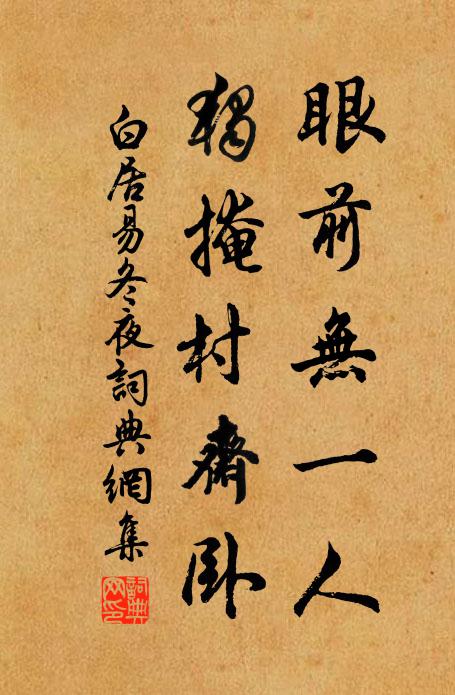 眼前無一人
獨掩村齋臥
白居易冬夜詞典網集
詞典网印